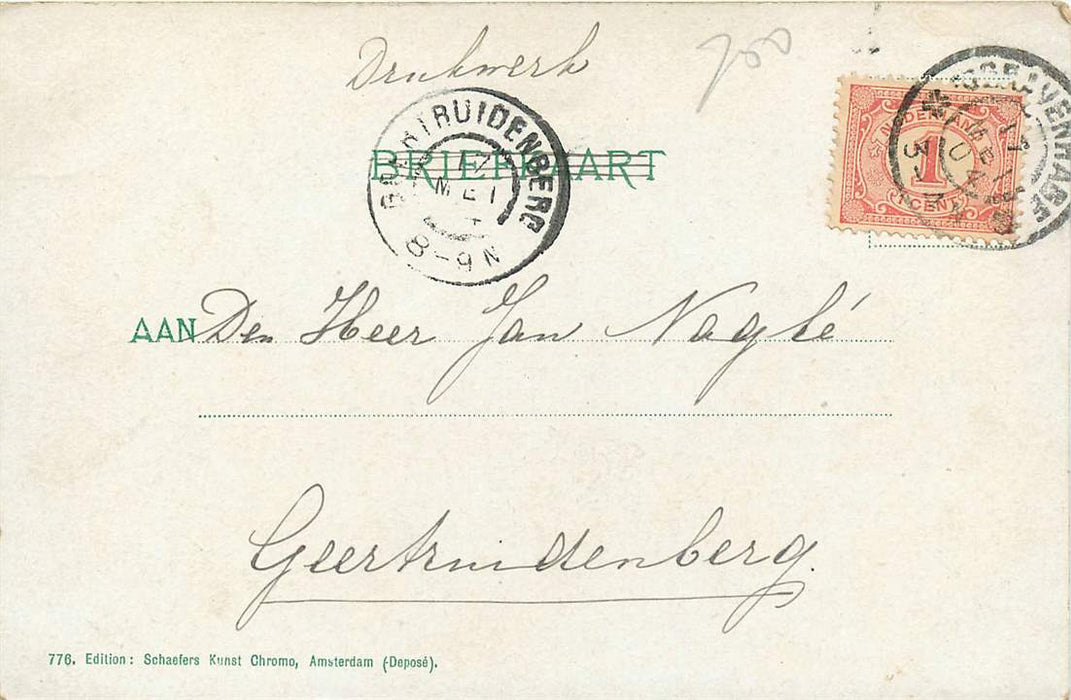 Drukwerk
700
BRIEFKAART
GEERTRUIDENBERG
17
MEI
4
8-9 N
'S-GRAVENHAGE
NEDERLAND
1
CENT
AAN Den Heer Jan Naglé
Geertruidenberg.
776. Edition: Schaefers Kunst Chromo, Amsterdam (-Deposé).